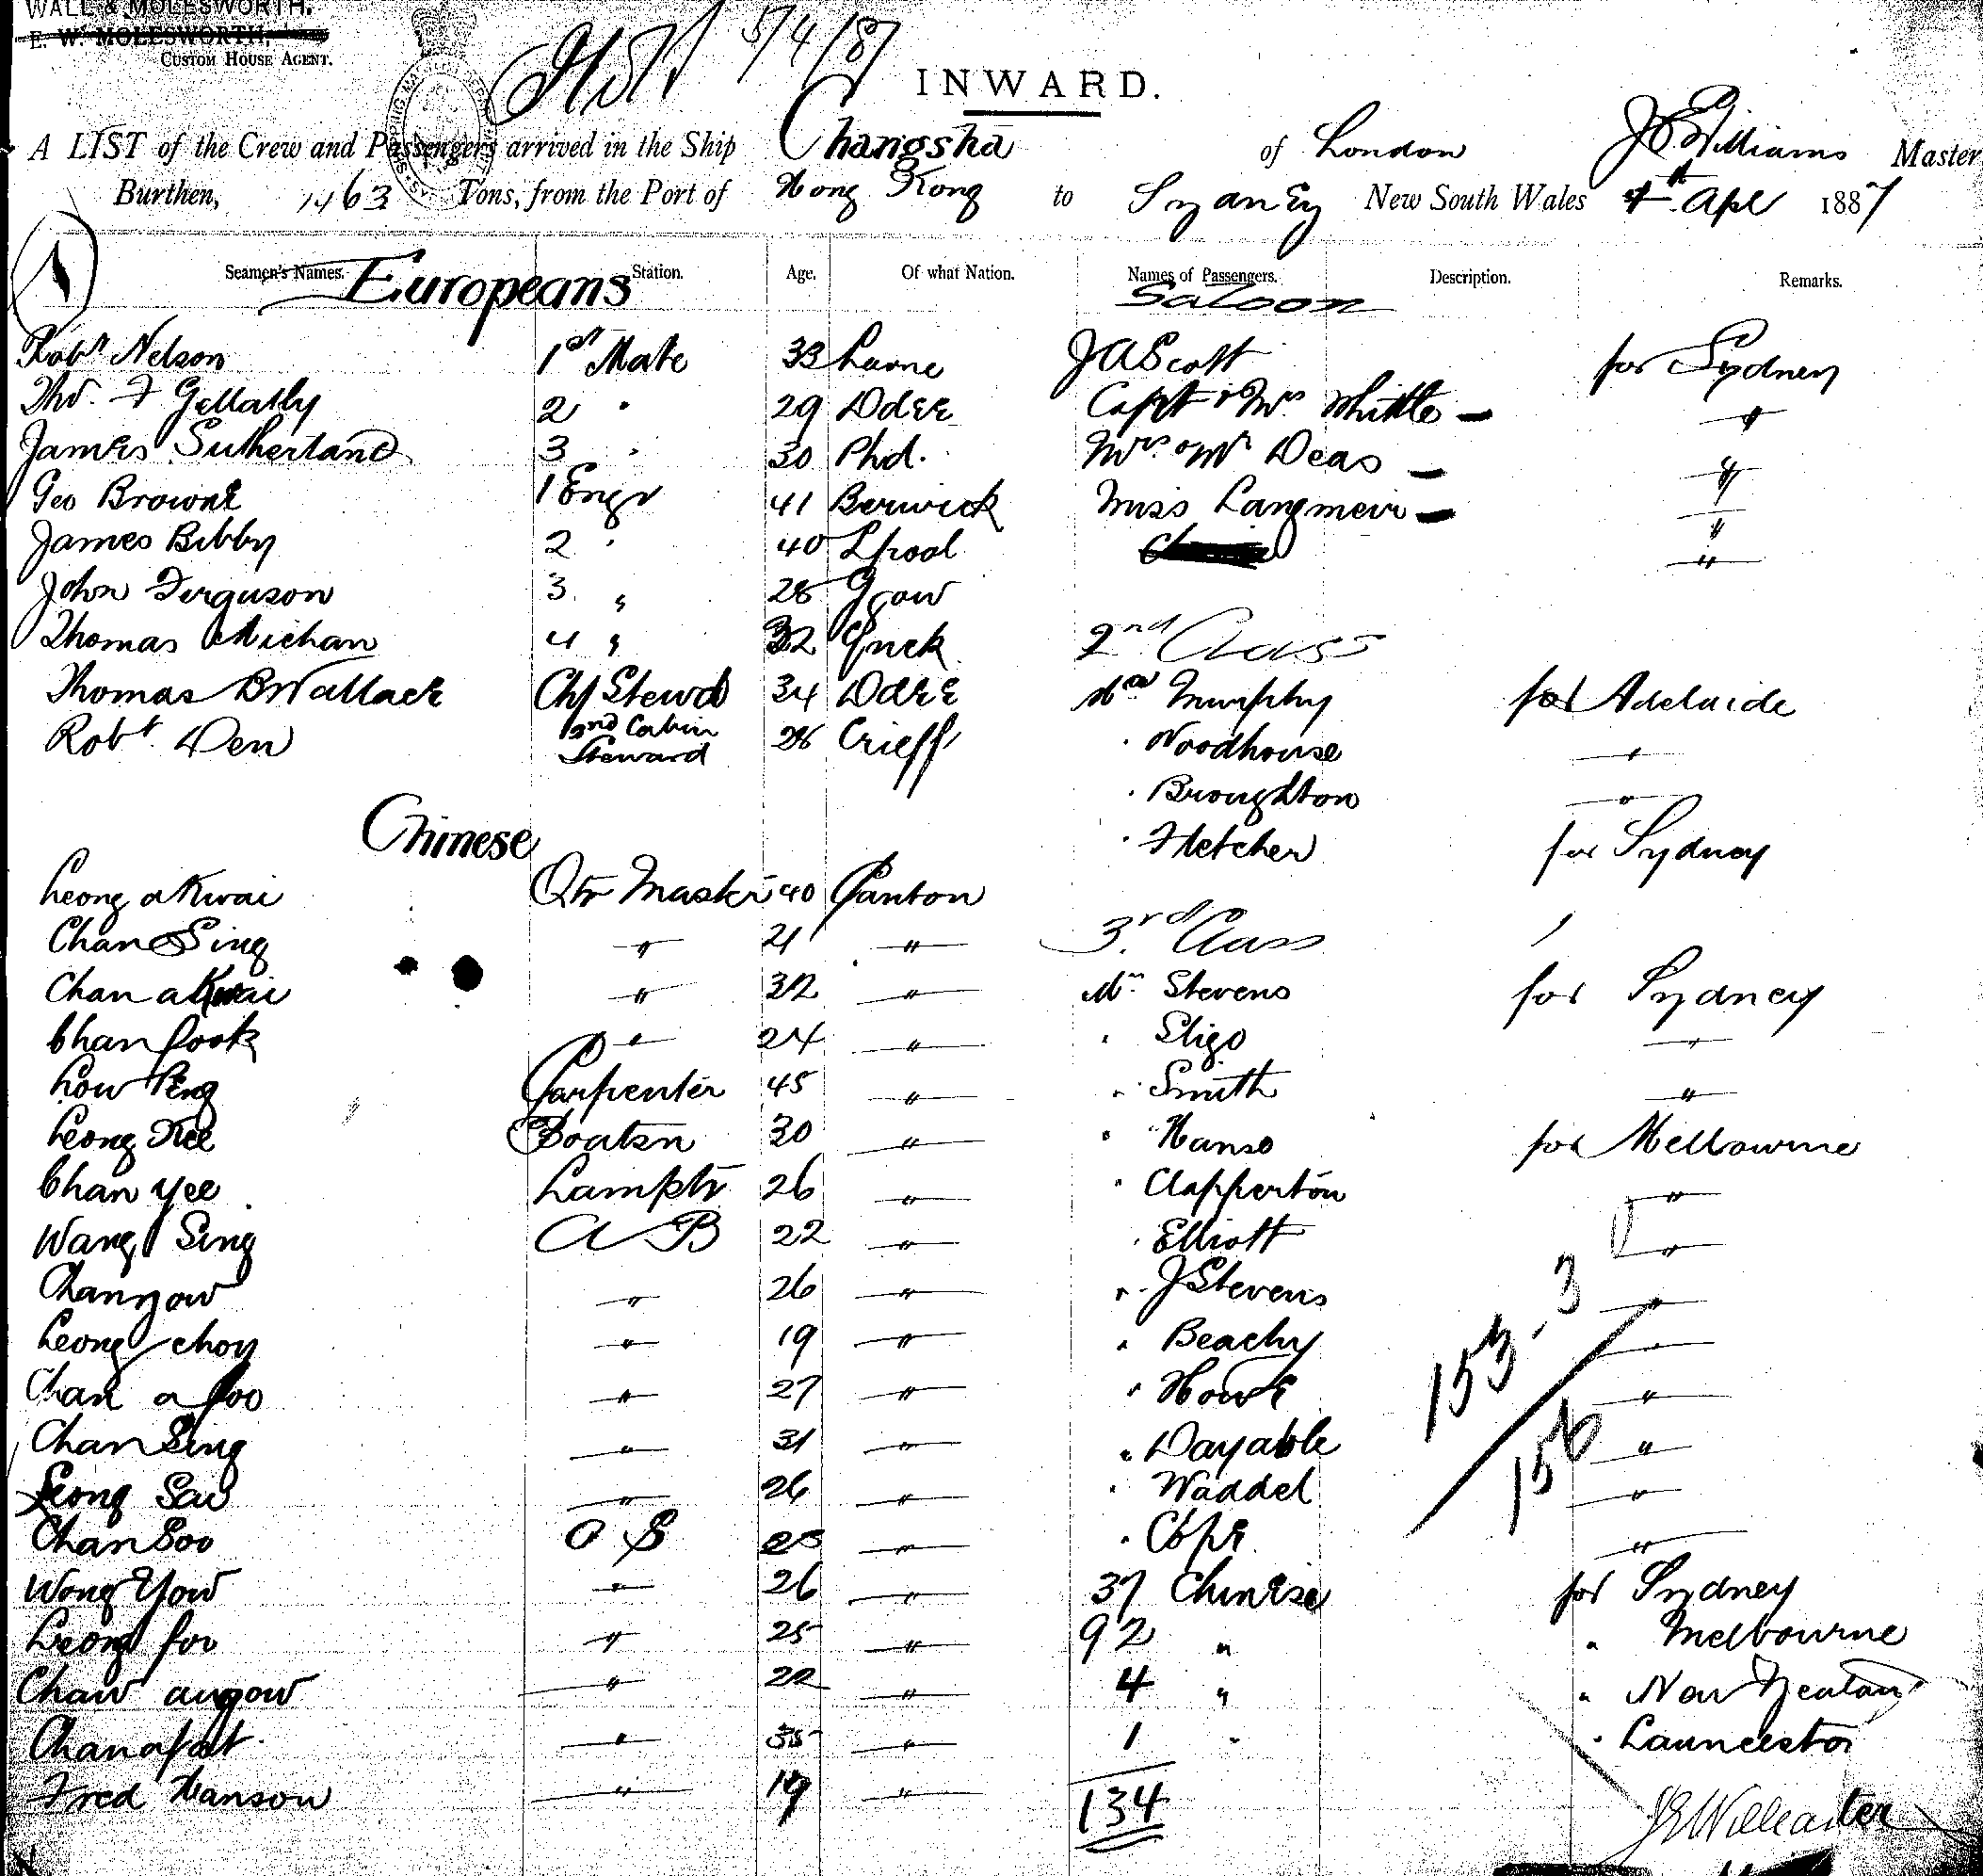 WALL & MOLESWORTH.
E. W. MOLESWORTH,
CUSTOM HOUSE AGENT.
5/4/87
INWARD.
A LIST of the Crew and Passengers arrived in the Ship Changsha of London J Williams Master
Burthen, 1463 Tons, from the Port of Hong Kong to Sydney New South Wales 4th Apl 1887
Seamen's Names. Station. Age. Of what Nation. Names of Passengers. Description. Remarks.
Europeans Saloon
Robt Nelson 1st Mate 33 Larne J A Scott for Sydney
Tho. F Gellatly 2 " 29 Ddee Capt & Mrs Whittle — "
James Sutherland 3 " 30 Phd. Mrs & Mr Deas — "
Geo Browne 1 Engr 41 Berwick Miss Langmeir — "
James Bibby 2 " 40 Lpool "
John Ferguson 3 " 28 Ggow
Thomas Michan 4 " 32 Gnck 2nd Class
Thomas B Wallace Chf Stewd 34 Ddee Mr Murphy for Adelaide
Robt Den 2nd Cabin Steward 28 Crieff " Woodhouse "
" Broughton "
Chinese " Fletcher for Sydney
Leong a Kwai Qtr Master 40 Canton
Chan Sing " 21 " 3rd Class
Chan a Kwai " 32 " Mr Stevens for Sydney
Chan fook " 24 " " Sligo "
Low Peng Carpenter 45 " " Smith "
Leong Kee Boatsn 30 " " Hanso for Melbourne
Chan yee Lamptr 26 " " Clapperton "
Wang Sing A B 22 " " Elliott "
Chanyow " 26 " " J Stevens "
Leong choy " 19 " " Beachy "
Chan a foo " 27 " " Howe "
Chan Sing " 31 " " Dayable "
Leong Sau " 26 " " Waddel "
Chan Soo O S " " Cope "
Wong Yow " 26 " 37 Chinese for Sydney
Leong foo " 25 " 92 " " Melbourne
Chaw augow " 22 " 4 " " New Zealand
Chanafat " 35 " 1 " " Launceston
Fred Hanson " 19 "
134
153 . 3
156